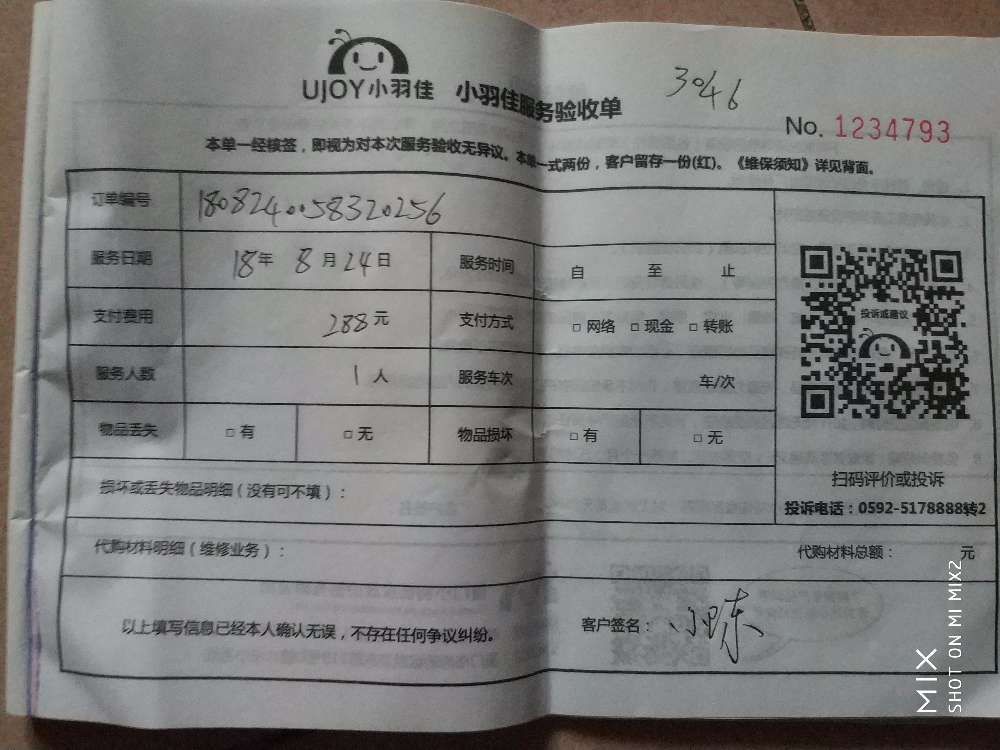 UJOY小羽佳 小羽佳服务验收单
3046
No. 1234793
本单一经核签，即视为对本次服务验收无异议。本单一式两份，客户留存一份(红)。《维保须知》详见背面。
订单编号 1808240058320256
服务日期 18年 8月24日 服务时间 自 至 止
支付费用 288元 支付方式 □网络 □现金 □转账
服务人数 1人 服务车次 车/次
物品丢失 □有 □无 物品损坏 □有 □无
投诉或建议
扫码评价或投诉
投诉电话：0592-5178888转2
损坏或丢失物品明细（没有可不填）：
代购材料明细（维修业务）： 代购材料总额： 元
以上填写信息已经本人确认无误，不存在任何争议纠纷。 客户签名：
MIX
SHOT ON MI MIX2